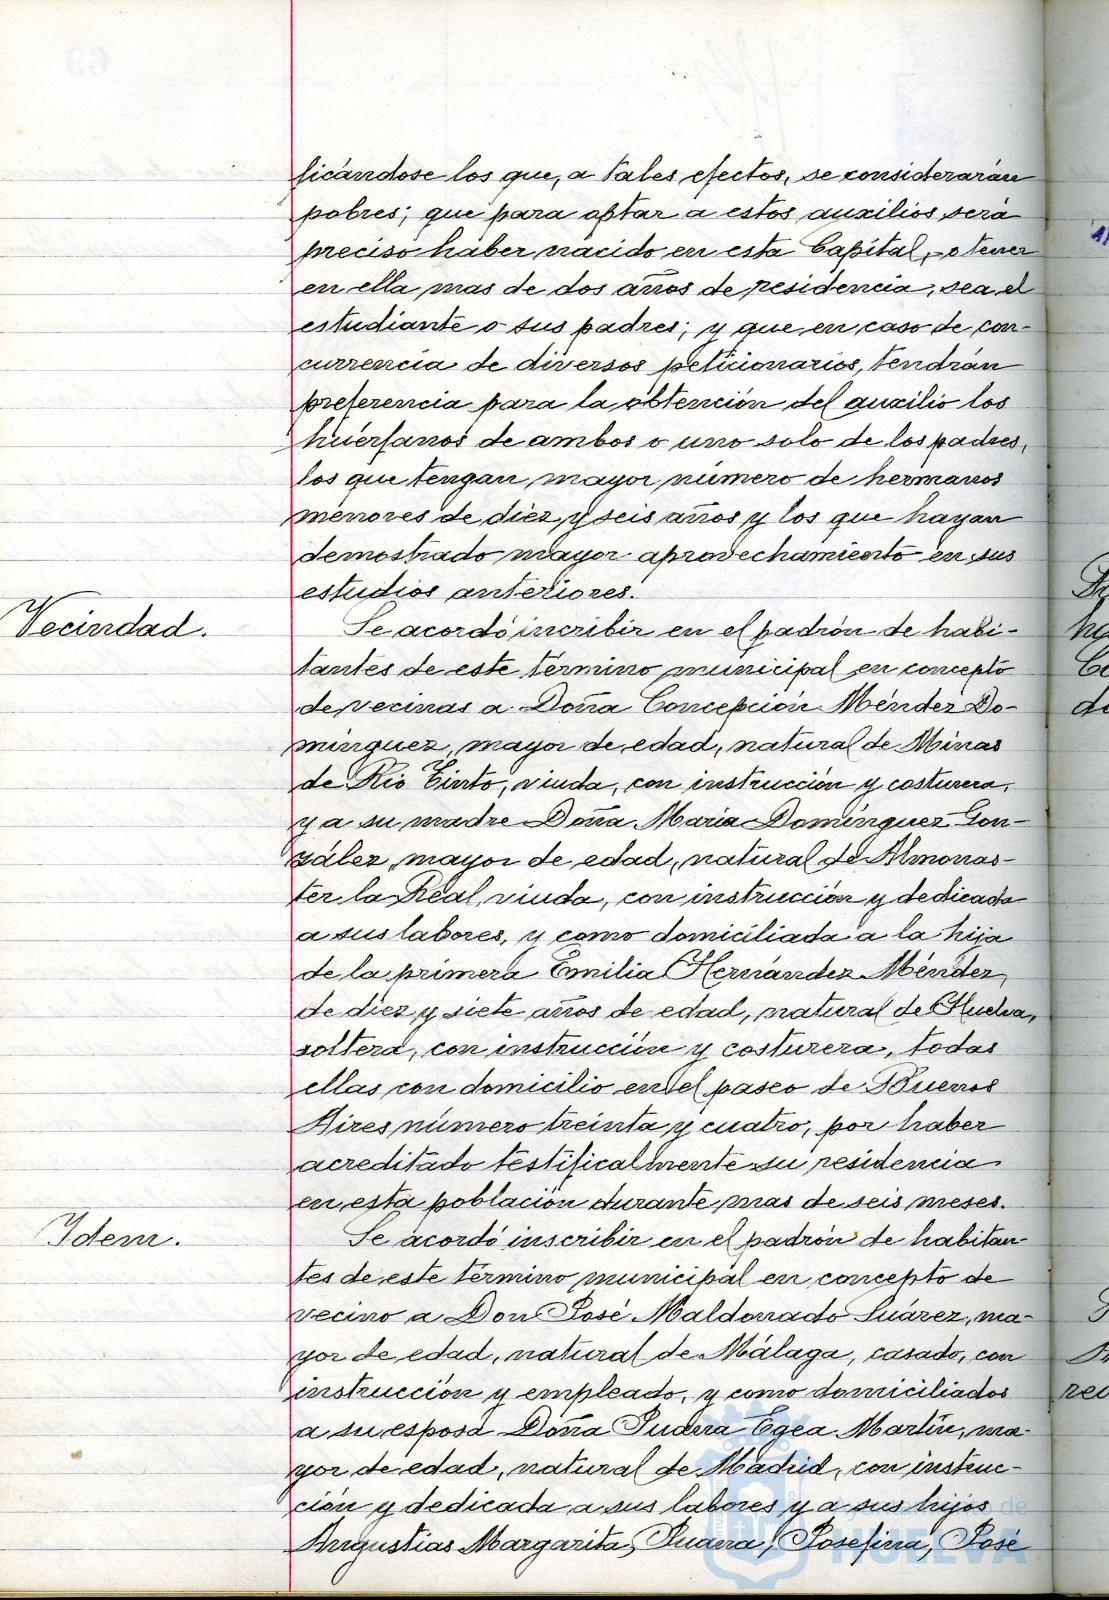 ficándose los que, a tales efectos, se considerarán
pobres; que para optar a estos auxilios será
preciso haber nacido en esta Capital, o tener
en ella mas de dos años de residencia, sea el
estudiante o sus padres; y que en caso de con-
currencia de diversos peticionarios, tendrán
preferencia para la obtención del auxilio los
huérfanos de ambos o uno solo de los padres,
los que tengan mayor número de hermanos
menores de diez y seis años y los que hayan
demostrado mayor aprovechamiento en sus
estudios anteriores.
Vecindad.
Se acordó incribir en el padrón de habi-
tantes de este término municipal en concepto
de vecinas a Doña Concepción Méndez Do-
mínguez, mayor de edad, natural de Minas
de Rio Tinto, viuda, con instrucción y costurera,
y a su madre Doña Maria Domínguez Gon-
zález, mayor de edad, natural de Almonas-
ter la Real, viuda, con instrucción y dedicada
a sus labores, y como domiciliada a la hija
de la primera Emilia Hernández Méndez,
de diez y siete años de edad, natural de Huelva,
soltera, con instrucción y costurera, todas
ellas con domicilio en el paseo de Buenos
Aires número treinta y cuatro, por haber
acreditado testificalmente su residencia
en esta población durante mas de seis meses.
Idem.
Se acordó inscribir en el padrón de habitan-
tes de este término municipal en concepto de
vecino a Don José Maldonado Suárez, ma-
yor de edad, natural de Málaga, casado, con
instrucción y empleado, y como domiciliados
a su esposa Doña Juana Egea Martín, ma-
yor de edad, natural de Madrid, con instruc-
ción y dedicada a sus labores y a sus hijos
Angustias Margarita, Juana, Josefina, José
HUELVA